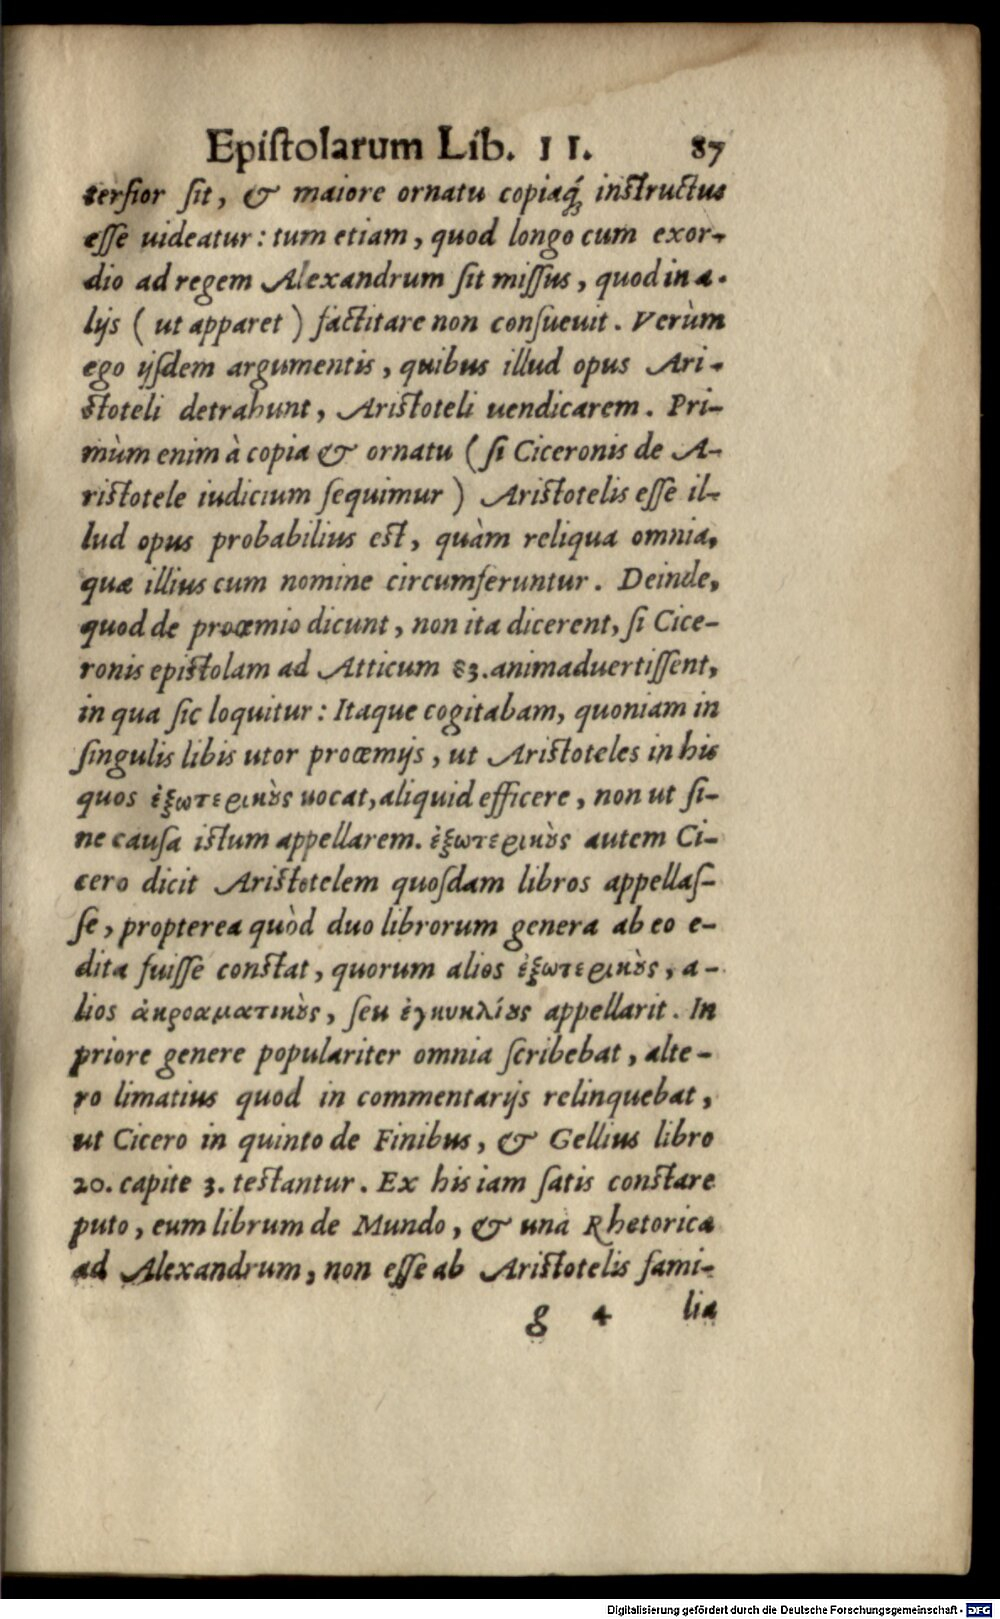 Epiſtolarum Lib. II. 87
terſior ſit, & maiore ornatu copiaq́; inſtructus
eſſe uideatur: tum etiam, quod longo cum exor-
dio ad regem Alexandrum ſit miſſus, quod in a-
lijs ( ut apparet ) factitare non conſueuit. Verùm
ego ijſdem argumentis, quibus illud opus Ari-
ſtoteli detrahunt, Ariſtoteli uendicarem. Pri-
mùm enim à copia & ornatu ( ſi Ciceronis de A-
riſtotele iudicium ſequimur ) Ariſtotelis eſſe il-
lud opus probabilius eſt, quàm reliqua omnia,
quæ illius cum nomine circumferuntur. Deinde,
quod de proœmio dicunt, non ita dicerent, ſi Cice-
ronis epiſtolam ad Atticum 83. animaduertiſſent,
in qua ſic loquitur: Itaque cogitabam, quoniam in
ſingulis libis utor proœmijs, ut Ariſtoteles in his
quos ἐξωτερικȣ̀ς uocat, aliquid efficere, non ut ſi-
ne cauſa iſtum appellarem. ἐξωτερικȣ̀ς autem Ci-
cero dicit Ariſtotelem quoſdam libros appellaſ-
ſe, propterea quòd duo librorum genera ab eo e-
dita fuiſſe conſtat, quorum alios ἐξωτερικȣ̀ς, a-
lios ἀκροαματικȣ̀ς, ſeu ἐγκυκλίȣς appellarit. In
priore genere populariter omnia ſcribebat, alte-
ro limatius quod in commentarijs relinquebat,
ut Cicero in quinto de Finibus, & Gellius libro
20. capite 3. teſtantur. Ex his iam ſatis conſtare
puto, eum librum de Mundo, & una Rhetorica
ad Alexandrum, non eſſe ab Ariſtotelis fami-
g 4 lia
Digitalisierung gefördert durch die Deutsche Forschungsgemeinschaft - DFG